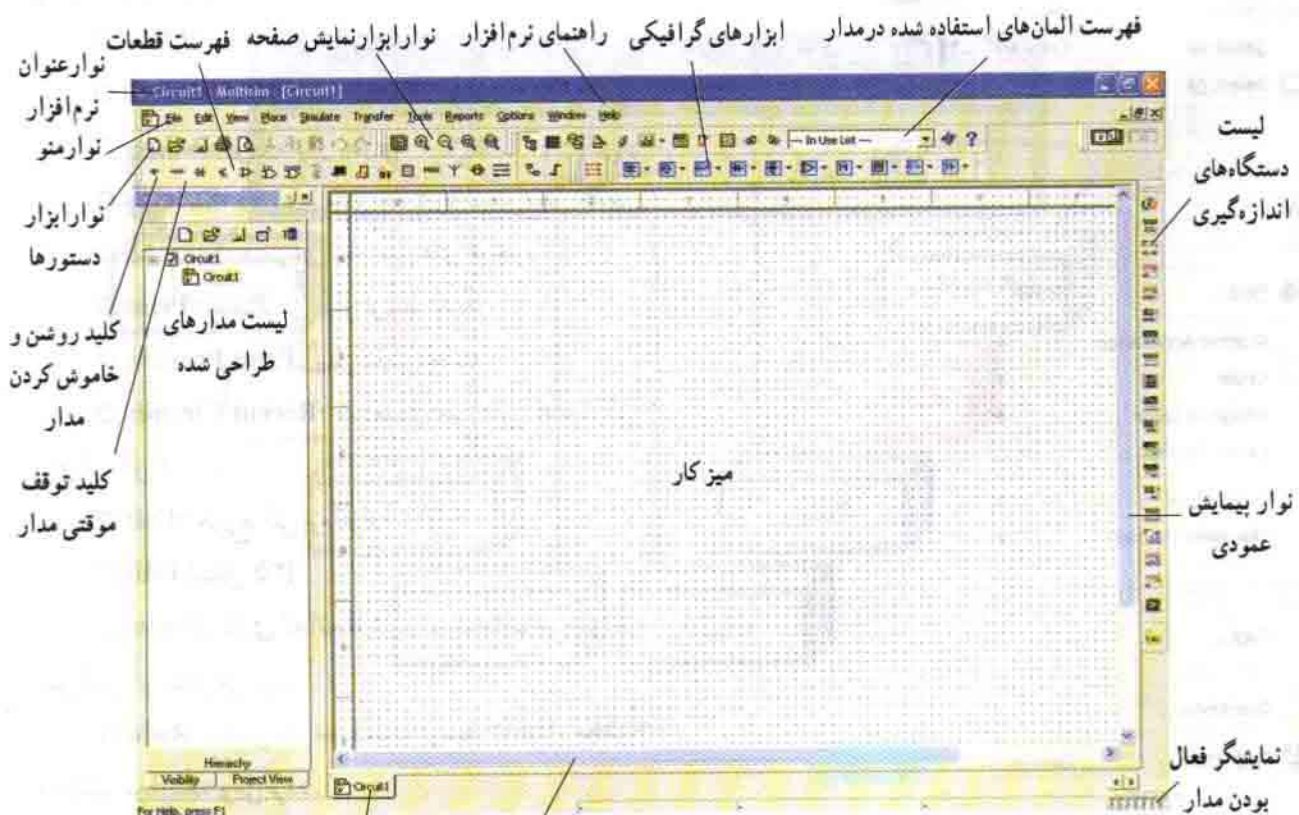 فهرست المان‌های استفاده شده درمدار
ابزارهای گرافیکی
راهنمای نرم‌افزار
نوارابزارنمایش صفحه
فهرست قطعات
نوارعنوان
نرم‌افزار
نوارمنو
نوارابزار
دستورها
کلید روشن و
خاموش کردن
مدار
کلید توقف
موقتی مدار
لیست
دستگاه‌های
اندازه‌گیری
نوار پیمایش
عمودی
نمایشگر فعال
بودن مدار
Circuit1 - Multisim - [Circuit1]
File Edit View Place Simulate Transfer Tools Reports Options Window Help
--- In Use List ---
Circuit1
Circuit1
لیست مدارهای
طراحی شده
میز کار
Hierarchy
Visibility Project View
Circuit1
For Help, press F1